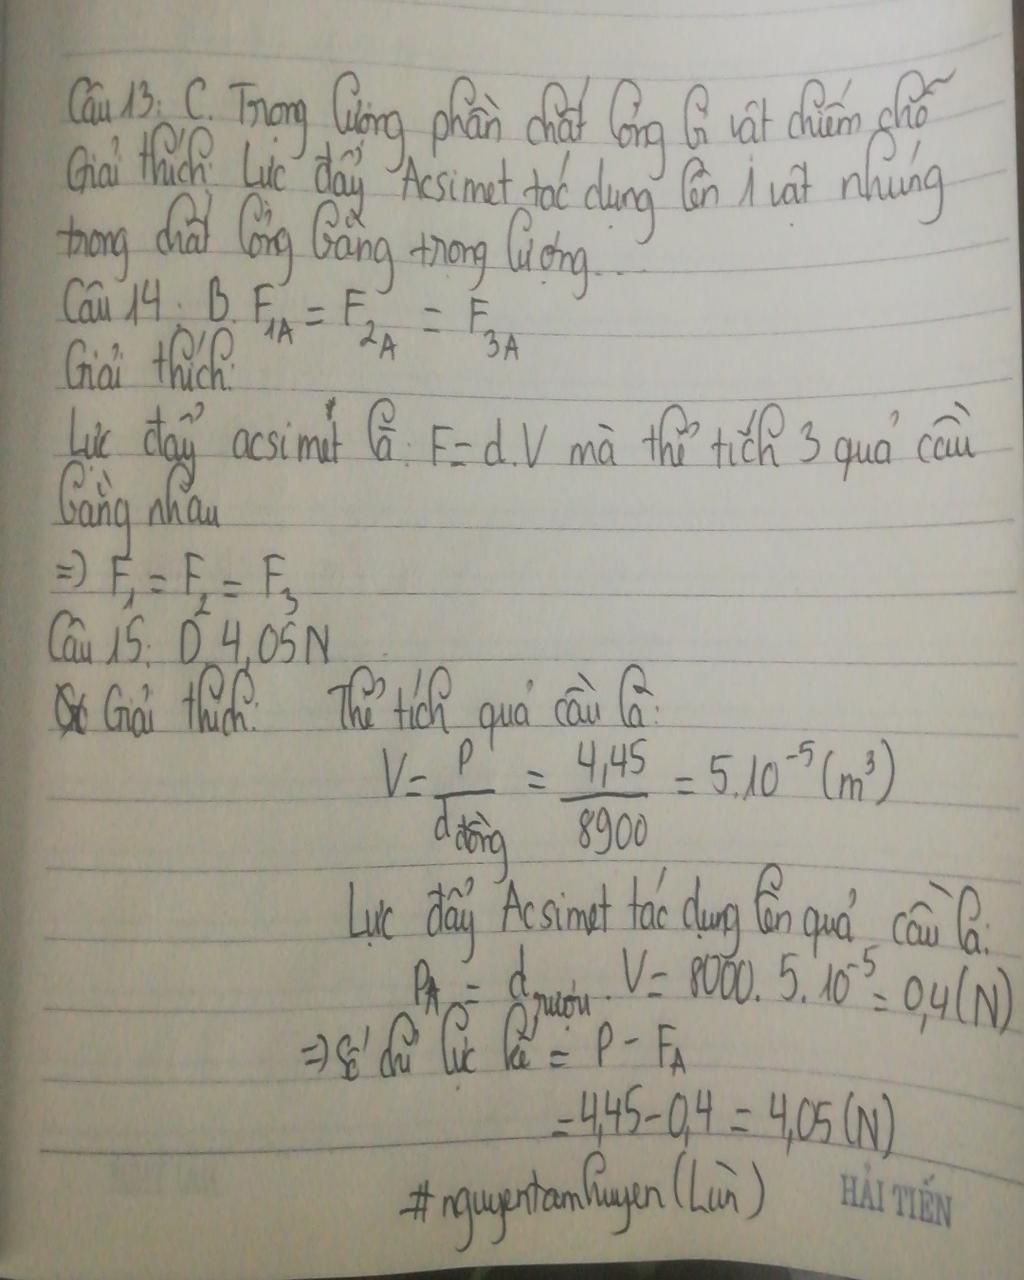 Câu 13: C. Trọng lượng phần chất lỏng bị vật chiếm chỗ
Giải thích: Lực đẩy Acsimet tác dụng lên 1 vật nhúng
trong chất lỏng bằng trọng lượng...
Câu 14. B. F1A = F2A = F3A
Giải thích:
Lực đẩy acsimét là: F = d.V mà thể tích 3 quả cầu
bằng nhau
=> F1 = F2 = F3
Câu 15: D 4,05N
Giải thích: Thể tích quả cầu là:
V = P / d đồng = 4,45 / 8900 = 5.10^-5 (m³)
Lực đẩy Acsimet tác dụng lên quả cầu là:
PA = d rượu . V = 8000. 5. 10^-5 = 0,4 (N)
=> Số chỉ lực kế = P - FA
= 4,45 - 0,4 = 4,05 (N)
#nguyentamhuyen (Lùn)
HẢI TIẾN